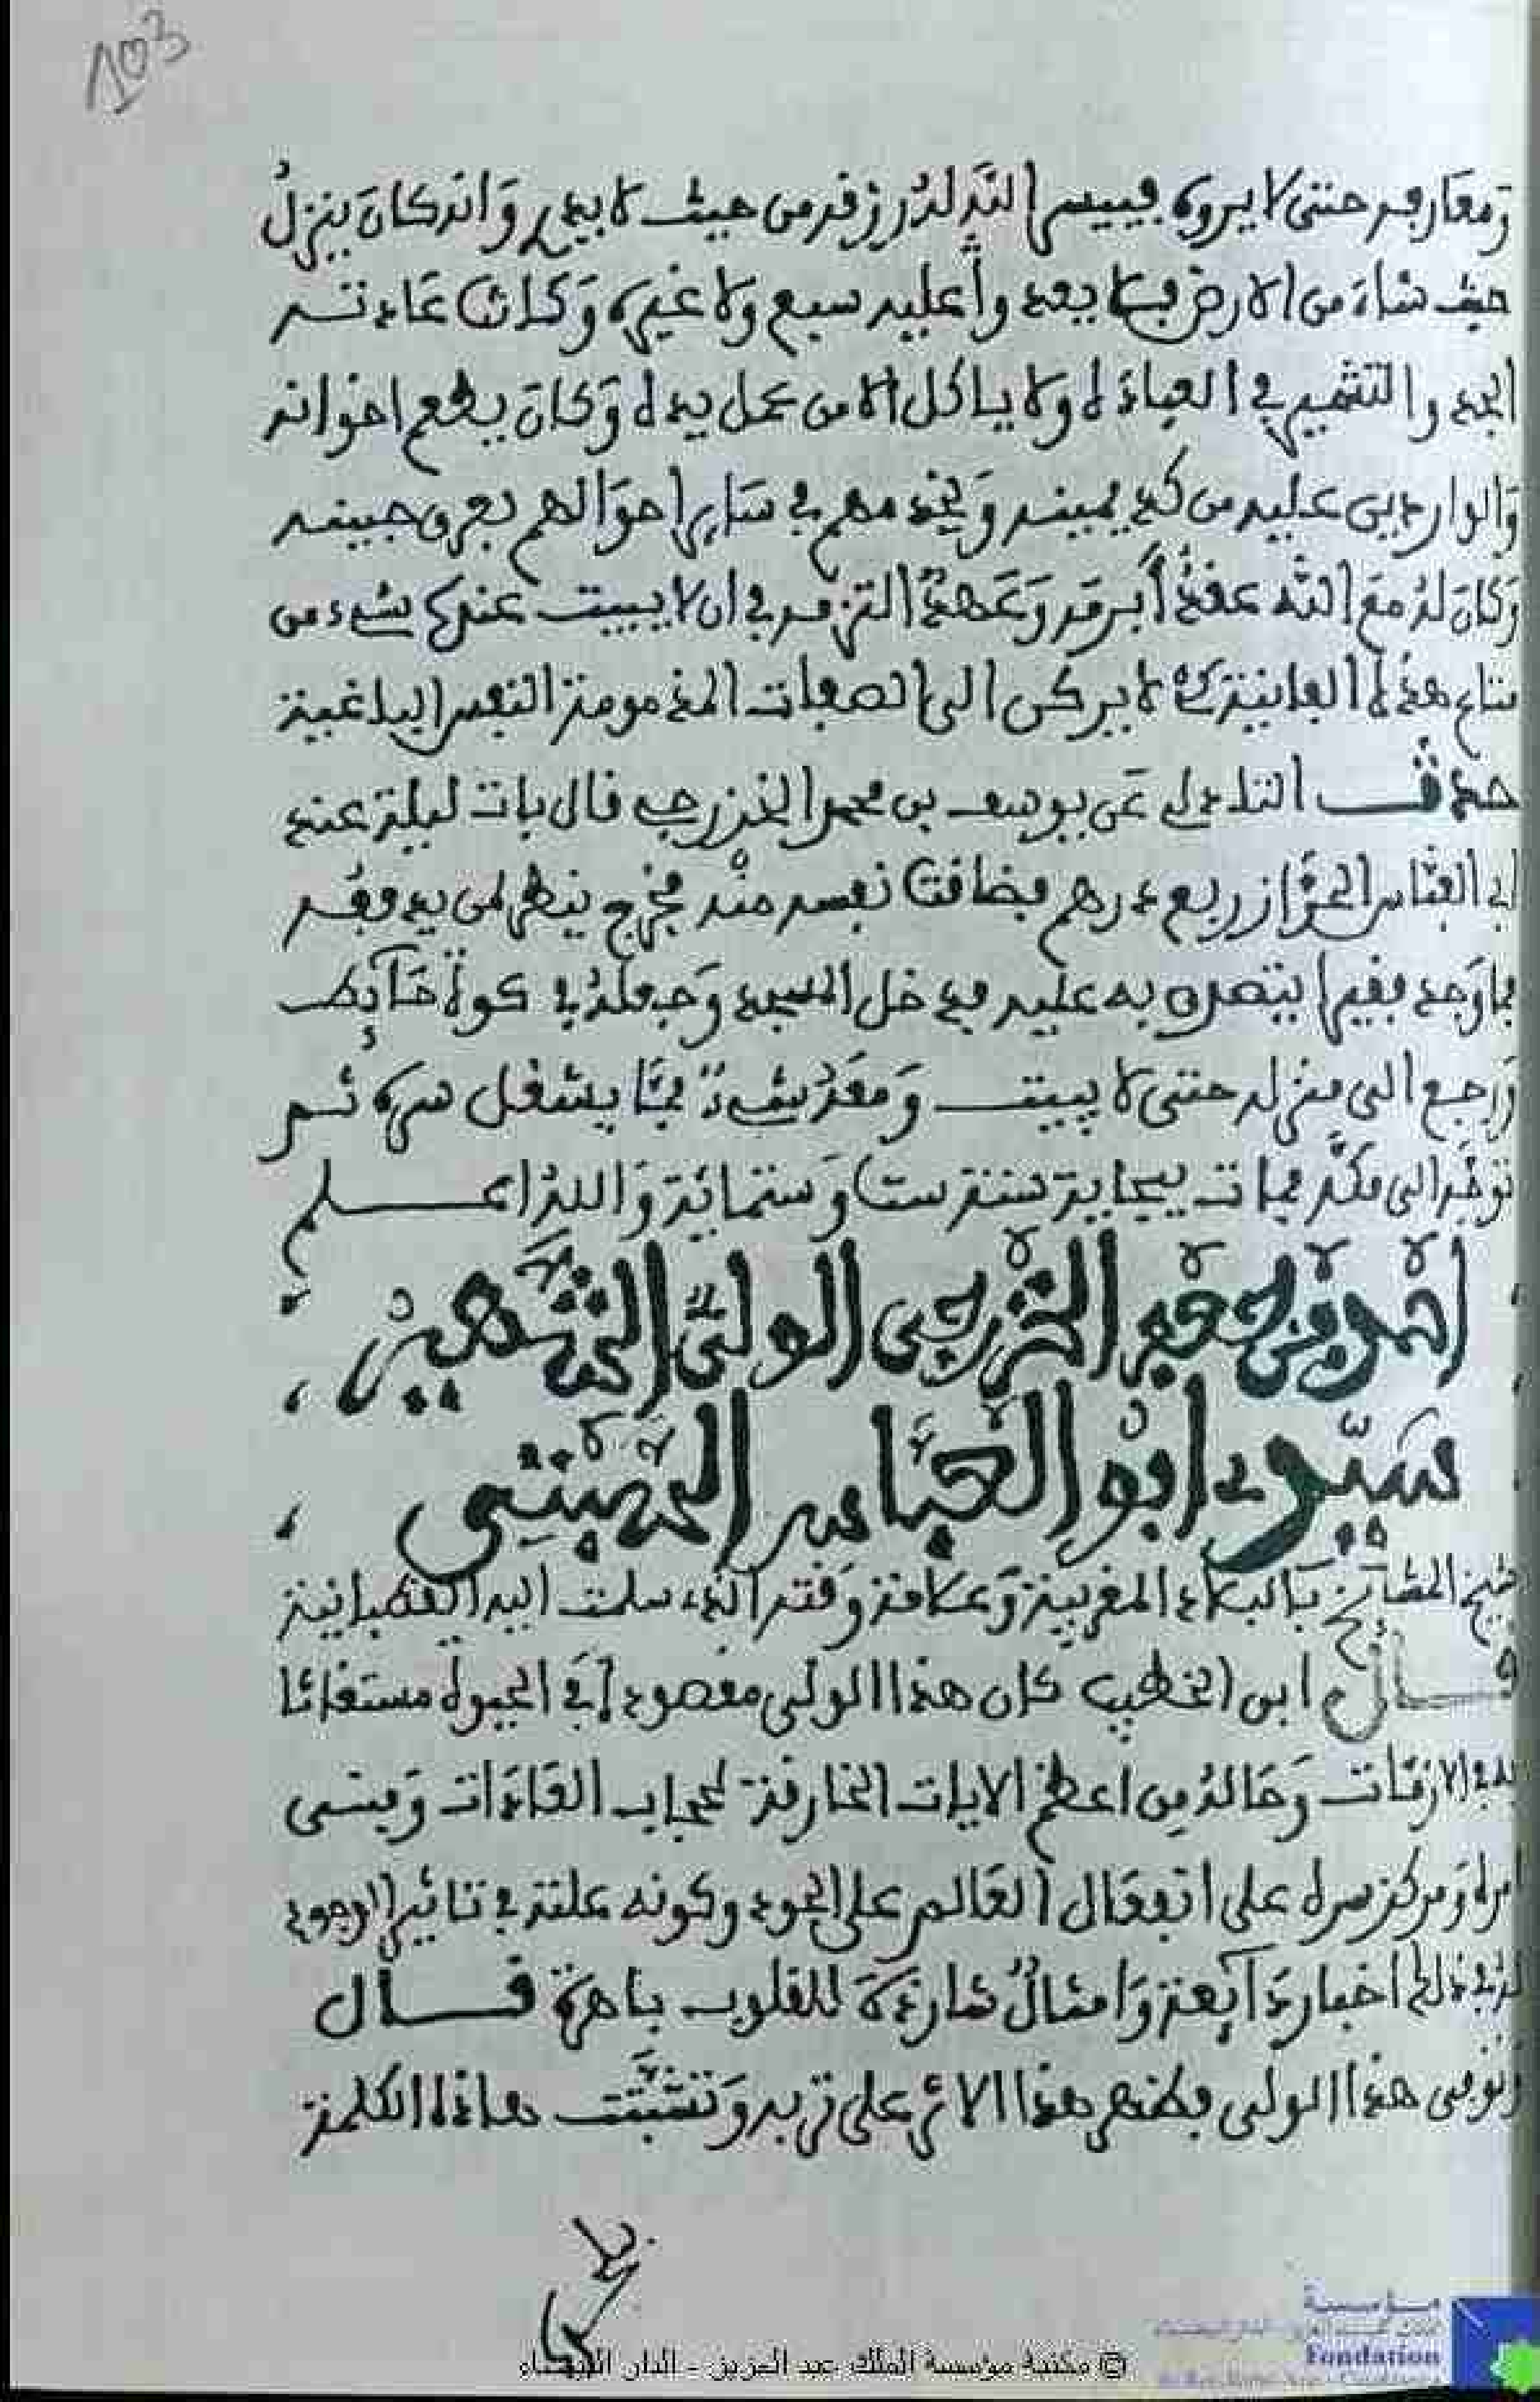 103
ومعارفه حتى لا يروه فييسر الله له رزقه من حيث لا يدر وانه كان ينزل
حيث شاء من الارض فلا يعدوا عليه سبع ولا غيره وكان عادته
الجد والتشمير في العبادة ولا ياكل الا من عمل يده وكان يطعم اخوانه
والواردين عليه من كد يمينه ويخدمهم في ساير احوالهم بعرق جبينه
وكان له مع الله عقد أبرمه وعهد التزمه في ان لا يبيت عنده شيء من
متاع هذه الفانية لا يركن الى الصفات المذمومة النفس الباغية
حدث التادلي عن يوسف بن محمد الخزرجي قال بات ليلة عند
ابي العباس الخراز ربع درهم فضاقت نفسه منه فخرج ينظر لمن يدفعه
فما وجد فقيرا يتصرق به عليه فدخل المسجد وجعله في كوة حآئط
ورجع الى منزله حتى لا يبيت ومعه شيء مما يشغل سره ثم
توجه الى مكة فمات بيجاية سنة ست وستمائة والله اعلم
احمد بن جعفر الخزرجي الولي الشهير
سيدي ابو العباس السبتي
شيخ المشائخ بالبلاد المغربية وعلامة وقته الذي سلمت اليه القطبانية
قال ابن الخطيب كان هذا الولي مقصودا في الحيوة مستغاثا
به في الازمات وحاله من اعظم الايات الخارفة لحجاب العادات ومبنى
امره ومركز سره على انفعال العالم على الجود وكونه علة في تاثير الوجود
له في ذالك اخبار ذآئعة وامثال شاردة للقلوب باهرة قال
وتوفي هذا الولي فظهر هذا الاثر على تربه وتشبثت هاذه الكلمة
© مكتبة مؤسسة الملك عبد العزيز - الدار البيضاء
مؤسسة
Fondation